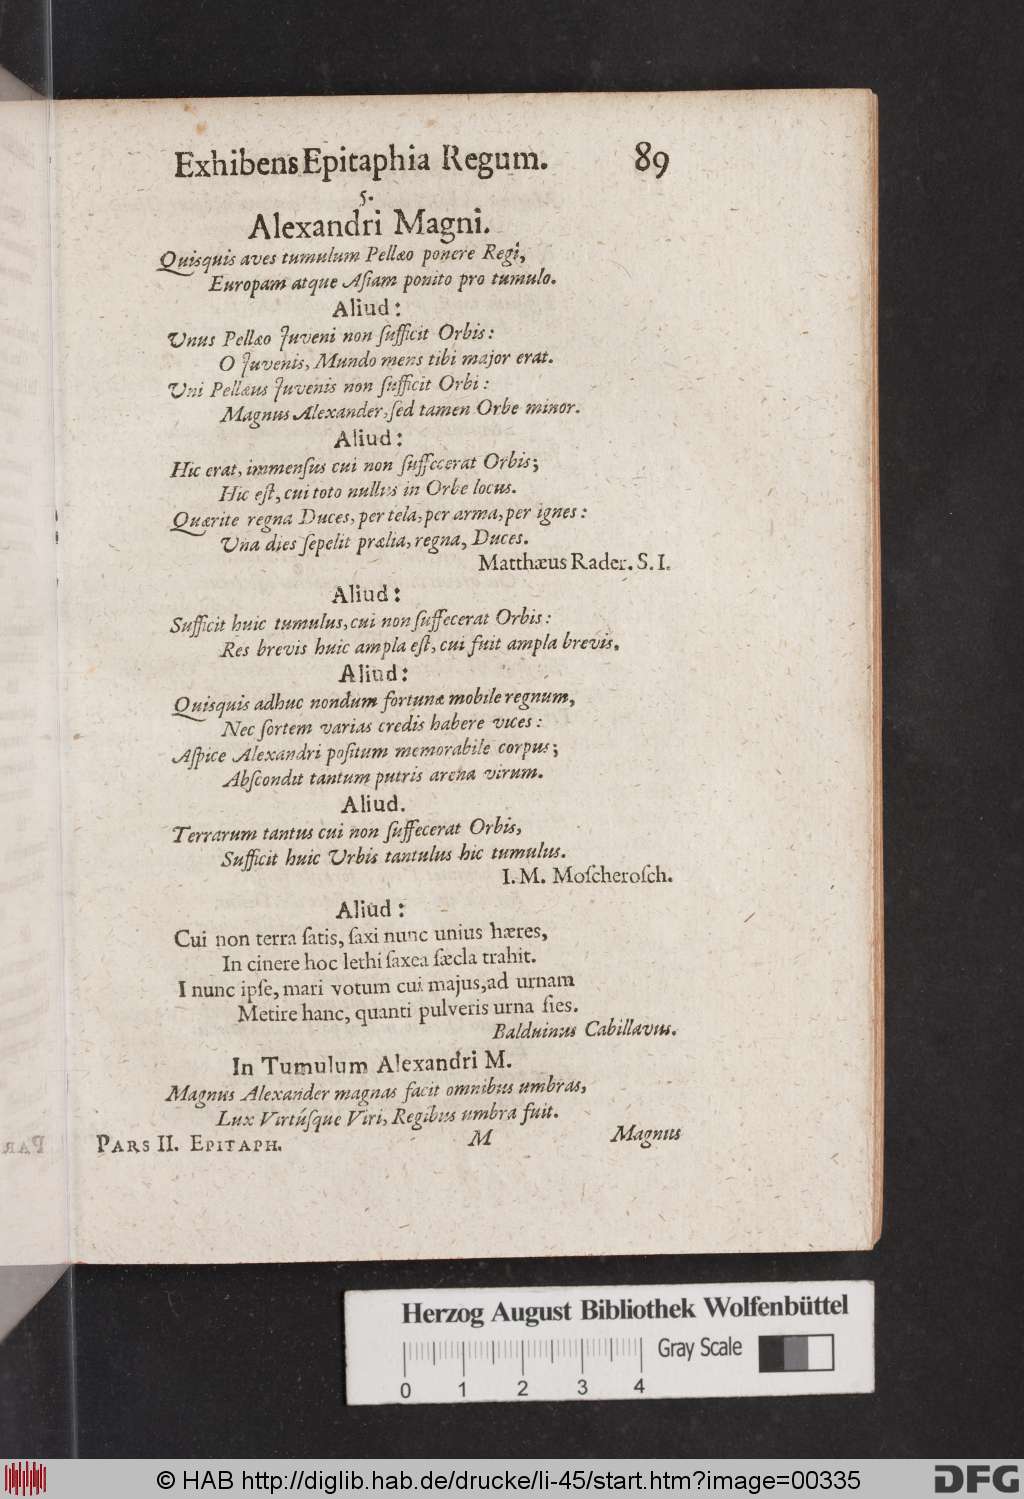 Exhibens Epitaphia Regum. 89
5.
Alexandri Magni.
Quisquis aves tumulum Pellæo ponere Regi,
Europam atque Aſiam ponito pro tumulo.
Aliud:
Unus Pellæo Juveni non ſufficit Orbis:
O Juvenis, Mundo mens tibi major erat.
Uni Pellæus Juvenis non ſufficit Orbi:
Magnus Alexander, ſed tamen Orbe minor.
Aliud:
Hic erat, immenſus cui non ſuffecerat Orbis;
Hic eſt, cui toto nullus in Orbe locus.
Quærite regna Duces, per tela, per arma, per ignes:
Una dies ſepelit prælia, regna, Duces.
Matthæus Rader. S. I.
Aliud:
Sufficit huic tumulus, cui non ſuffecerat Orbis:
Res brevis huic ampla eſt, cui fuit ampla brevis.
Aliud:
Quisquis adhuc nondum fortunæ mobile regnum,
Nec ſortem varias credis habere vices:
Aſpice Alexandri poſitum memorabile corpus;
Abſcondit tantum putris arena virum.
Aliud.
Terrarum tantus cui non ſuffecerat Orbis,
Sufficit huic Urbis tantulus hic tumulus.
I. M. Moſcheroſch.
Aliud:
Cui non terra ſatis, ſaxi nunc unius hæres,
In cinere hoc lethi ſaxea ſæcla trahit.
I nunc ipſe, mari votum cui majus, ad urnam
Metire hanc, quanti pulveris urna ſies.
Balduinus Cabillavus.
In Tumulum Alexandri M.
Magnus Alexander magnas facit omnibus umbras,
Lux Virtúſque Viri, Regibus umbra fuit.
PARS II. EPITAPH. M Magnus
Herzog August Bibliothek Wolfenbüttel
Gray Scale
0 1 2 3 4
© HAB http://diglib.hab.de/drucke/li-45/start.htm?image=00335
DFG